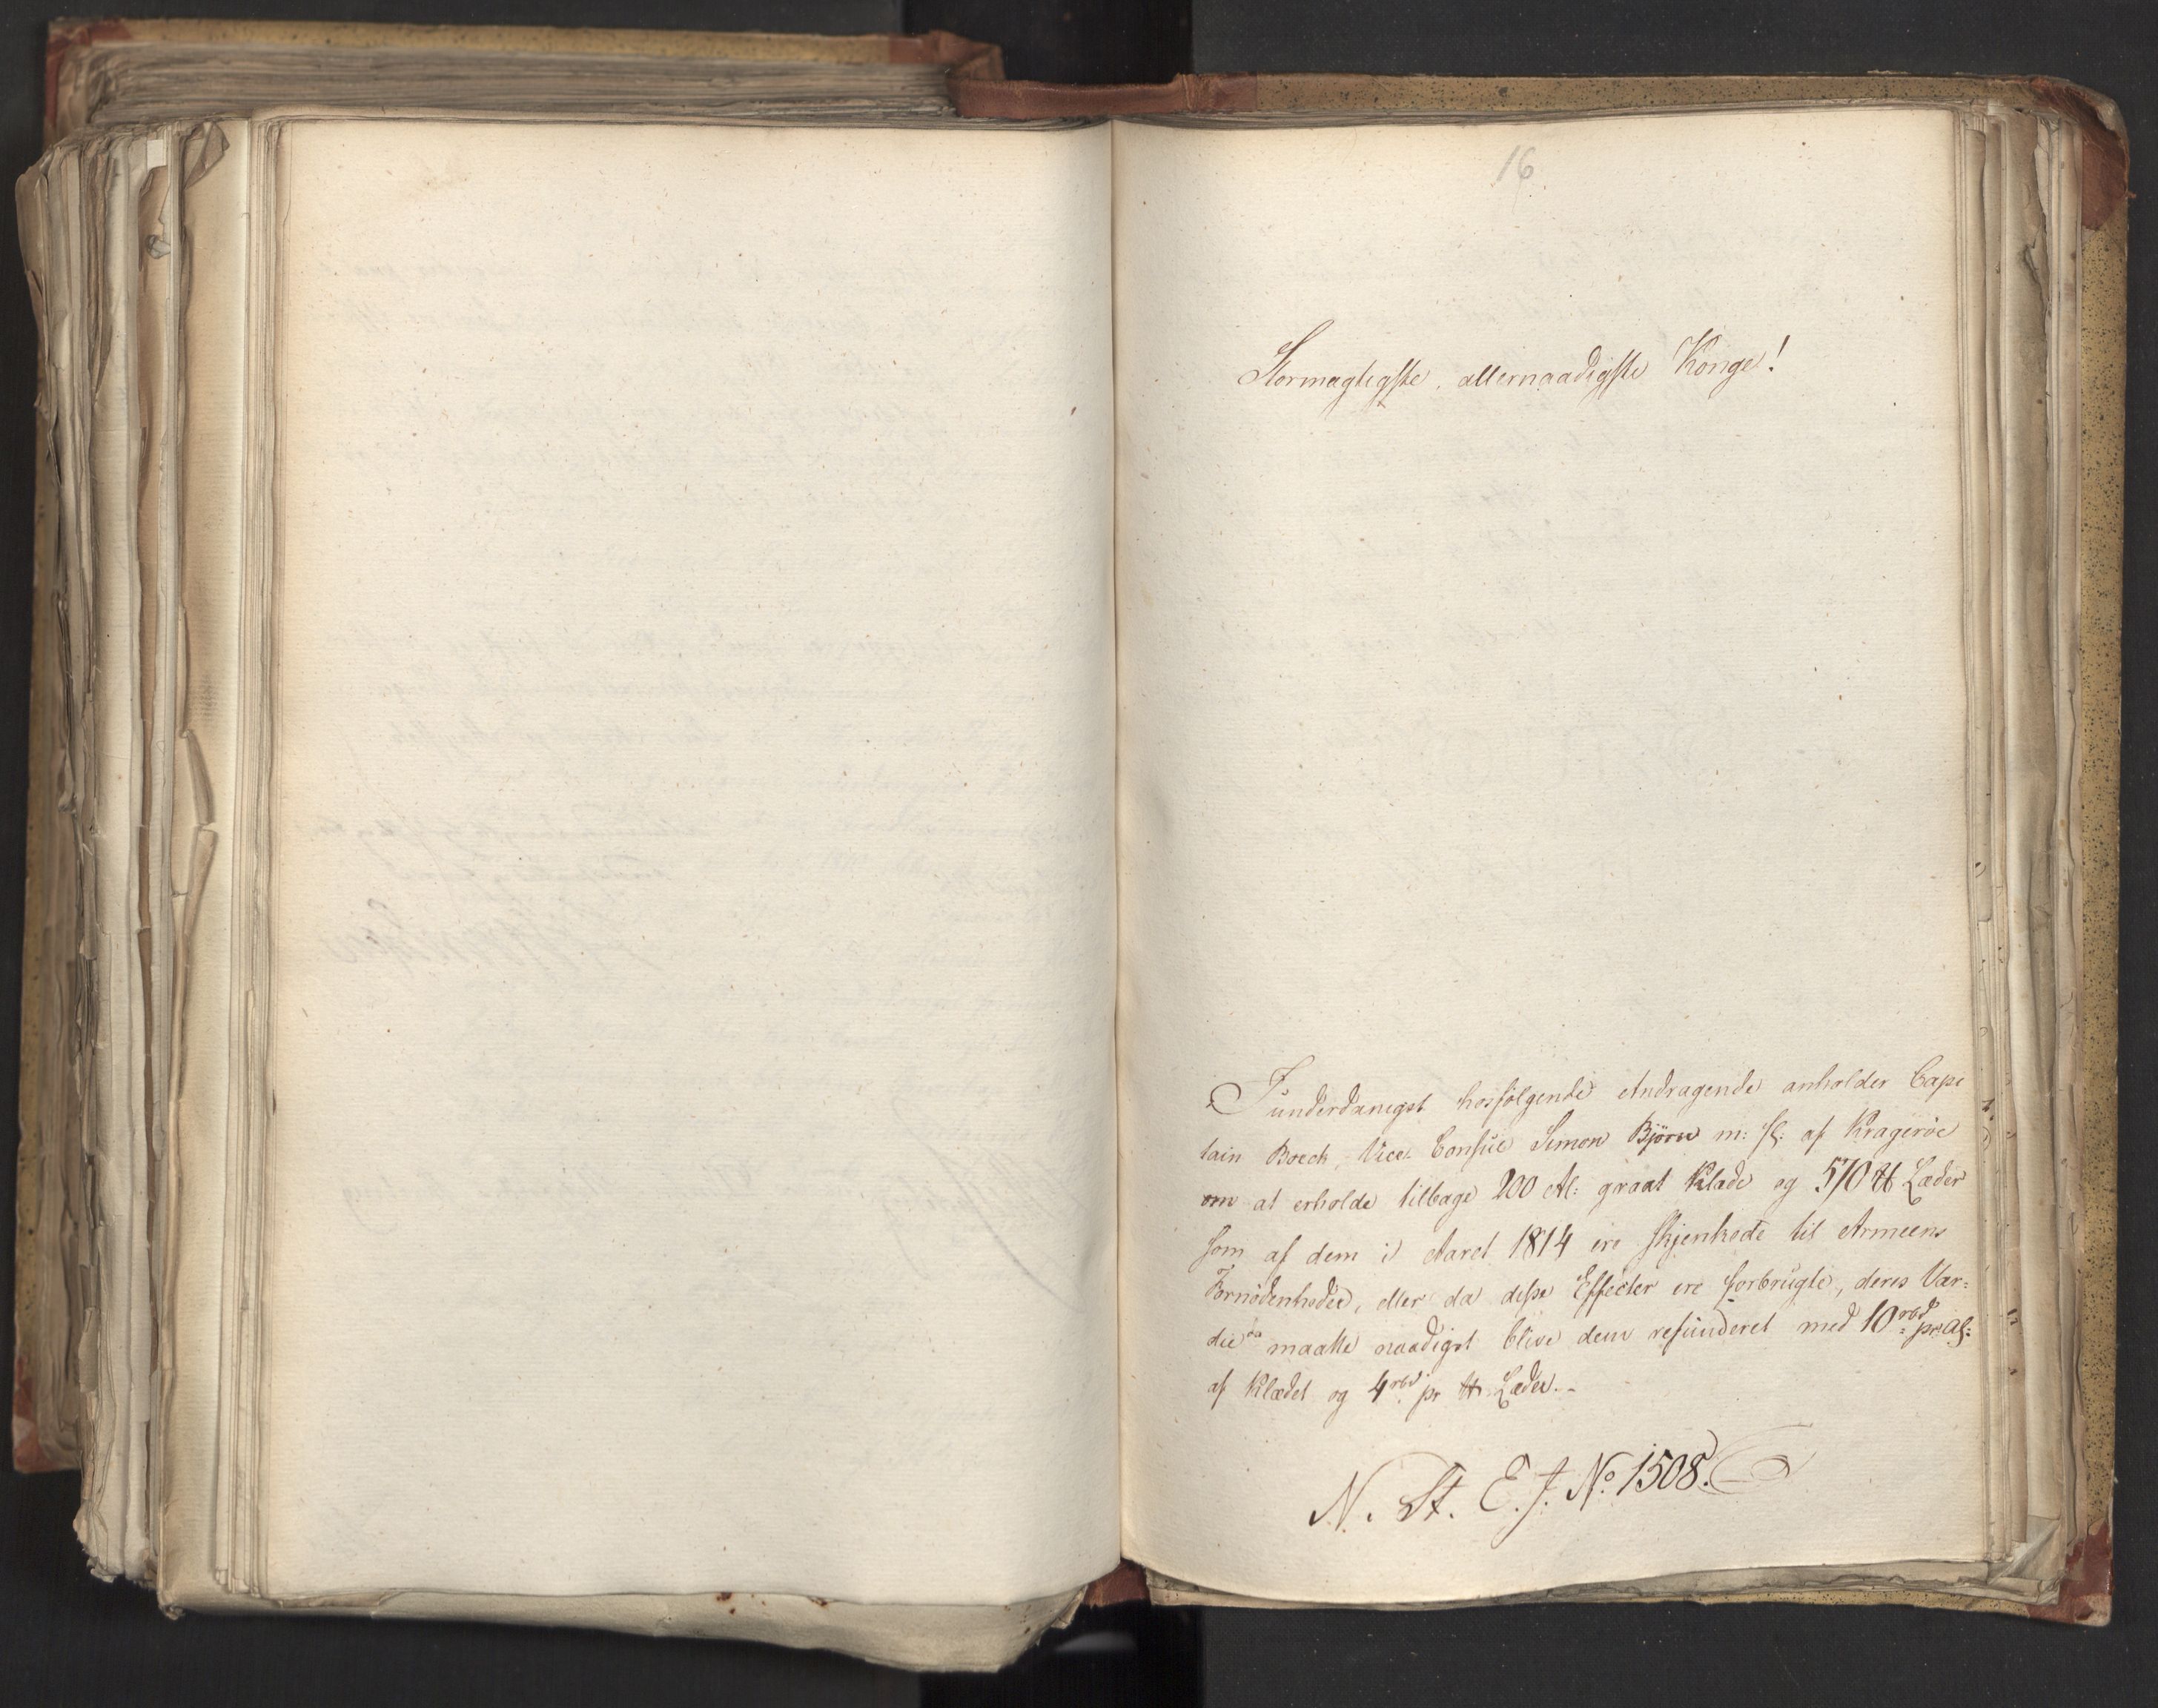 16
Stormægtigste, allernaadigste Konge!
I underdanigst hosfølgende Andragende anholder Cape
tain Boeck, Vice Consul Simon Bjørn m: fl: af Kragerøe
om at erholde tilbage 200 Al: graat Klæde og 570 ℔ Læder
som af dem i Aaret 1814 ere skjenkede til Armeens
Fornødenheder, eller da disse Effecter ere forbrugte, deres Vær=
die da maatte naadigst blive dem refunderet med 10 rbd pr Al:
af Klædet og 4 rbd pr ℔ Læder.-
N. St. E. J. No. 1508.